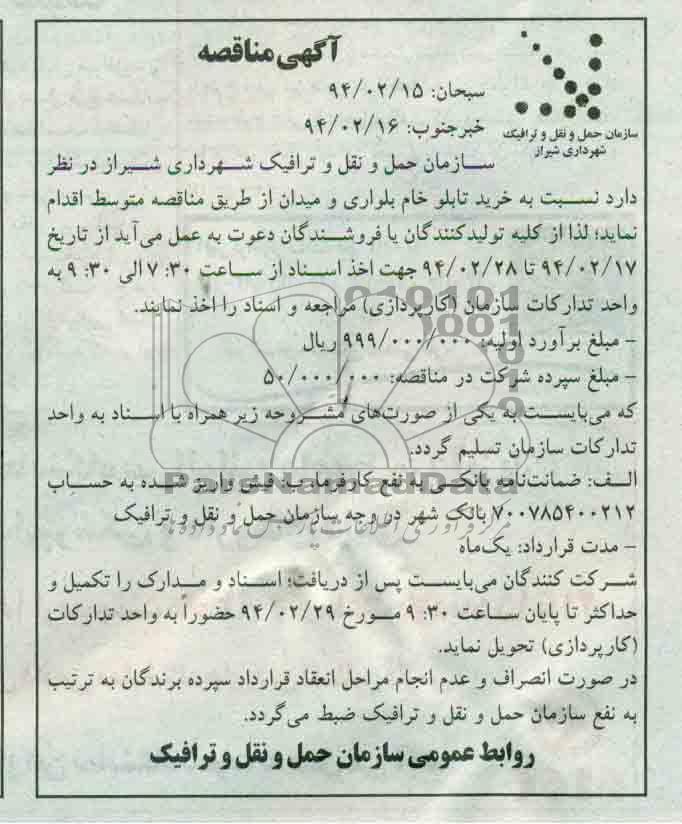 آگهی مناقصه
سبحان: ۹۴/۰۲/۱۵
خبرجنوب: ۹۴/۰۲/۱۶
سازمان حمل و نقل و ترافیک
شهرداری شیراز
سازمان حمل و نقل و ترافیک شهرداری شیراز در نظر
دارد نسبت به خرید تابلو خام بلواری و میدان از طریق مناقصه متوسط اقدام
نماید؛ لذا از کلیه تولیدکنندگان یا فروشندگان دعوت به عمل می‌آید از تاریخ
۹۴/۰۲/۱۷ تا ۹۴/۰۲/۲۸ جهت اخذ اسناد از ساعت ۷:۳۰ الی ۹:۳۰ به
واحد تدارکات سازمان (کارپردازی) مراجعه و اسناد را اخذ نمایند.
– مبلغ برآورد اولیه: ۹۹۹/۰۰۰/۰۰۰ ریال
– مبلغ سپرده شرکت در مناقصه: ۵۰/۰۰۰/۰۰۰
که می‌بایست به یکی از صورت‌های مشروحه زیر همراه با اسناد به واحد
تدارکات سازمان تسلیم گردد.
الف: ضمانت‌نامه بانکی به نفع کارفرما، ب: فیش واریز شده به حساب
ParsNamadData
۷۰۰۷۸۵۴۰۰۲۱۲ بانک شهر در وجه سازمان حمل و نقل و ترافیک
– مدت قرارداد: یک‌ماه
شرکت کنندگان می‌بایست پس از دریافت؛ اسناد و مدارک را تکمیل و
حداکثر تا پایان ساعت ۹:۳۰ مورخ ۹۴/۰۲/۲۹ حضوراً به واحد تدارکات
(کارپردازی) تحویل نماید.
در صورت انصراف و عدم انجام مراحل انعقاد قرارداد سپرده برندگان به ترتیب
به نفع سازمان حمل و نقل و ترافیک ضبط می‌گردد.
روابط عمومی سازمان حمل و نقل و ترافیک